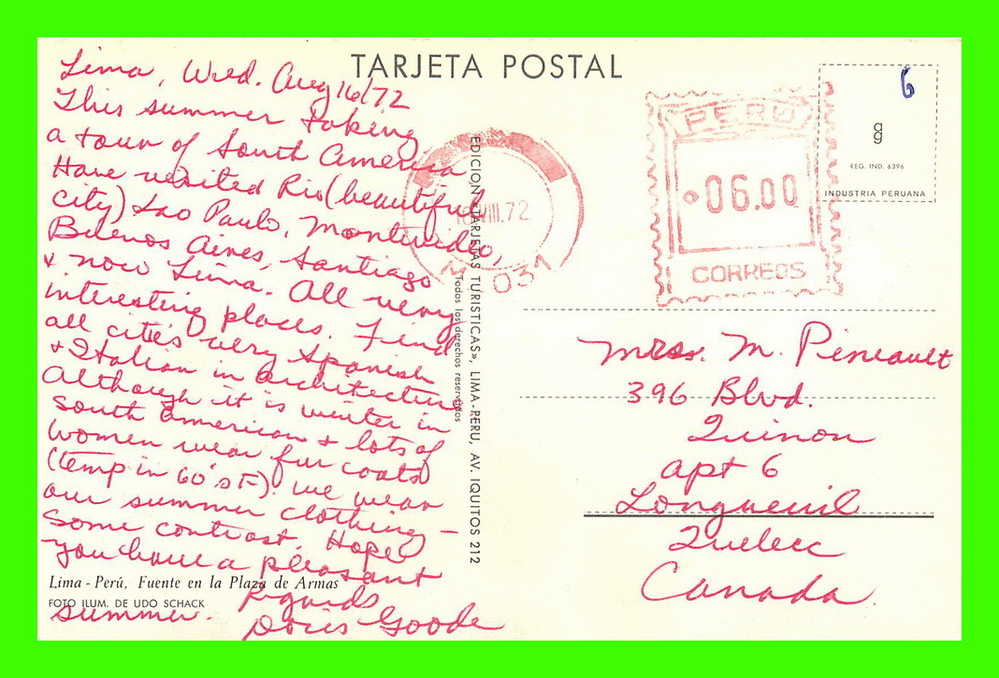 TARJETA POSTAL
Lima, Wed. Aug 16/72
This summer taking
a tour of South America
Have visited Rio (beautiful
city) Sao Paulo, Montevideo,
Buenos Aires, Santiago
& now Lima. All very
interesting places. Find
all cities very Spanish
& Italian in architecture
Although it is winter in
South American & lots of
women wear fur coats
(temp in 60's F). We wear
our summer clothing -
some contrast. Hope
you have a pleasant
summer.
Regards
Doris Goode
Lima - Perú. Fuente en la Plaza de Armas
FOTO ILUM. DE UDO SCHACK
EDICION «TARJETAS TURISTICAS», LIMA-PERU, AV. IQUITOS 212
Todos los derechos reservados
VIII.72
031
PERU
06.00
CORREOS
6
g
g
REG. IND. 6396
INDUSTRIA PERUANA
Mrss. M. Pineault
396 Blvd.
Quinon
apt 6
Longueuil
Quebec
Canada.